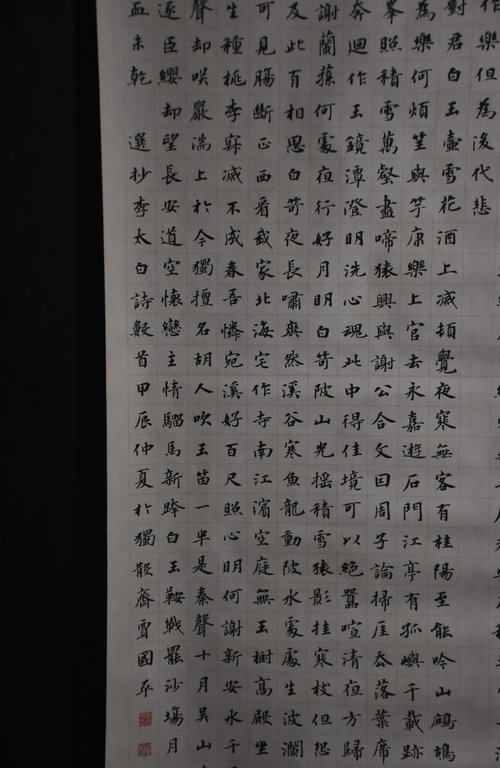 作樂但為後代悲
對君白玉壺雪花酒上滅頓覺夜寒無客有桂陽至能吟山鷓鴣
為樂何煩笙與竽康樂上官去永嘉遊石門江亭有孤嶼千載跡
峯照積雪萬壑盡啼猿興與謝公合文因周子論掃崖去落葉席
奔迴作玉鏡潭澄明洗心魂此中得佳境可以絕囂喧清夜方歸
謝蘭蓀何處夜行好月明白笴陂山光搖積雪猿影挂寒枝但恐
及此有相思白笴夜長嘯爽然溪谷寒魚龍動陂水處處生波瀾
可見腸斷正西看我家北海宅作寺南江濱空庭無玉樹高殿坐
生種桃李寂滅不成春吾憐宛溪好百尺照心明何謝新安水千
聲却咲嚴湍上於今獨擅名胡人吹玉笛一半是秦聲十月吳山
逐臣纓却望長安道空懷戀主情騮馬新跨白玉鞍戰罷沙場月
血未乾 選抄李太白詩數首甲辰仲夏於獨散齋賈國平